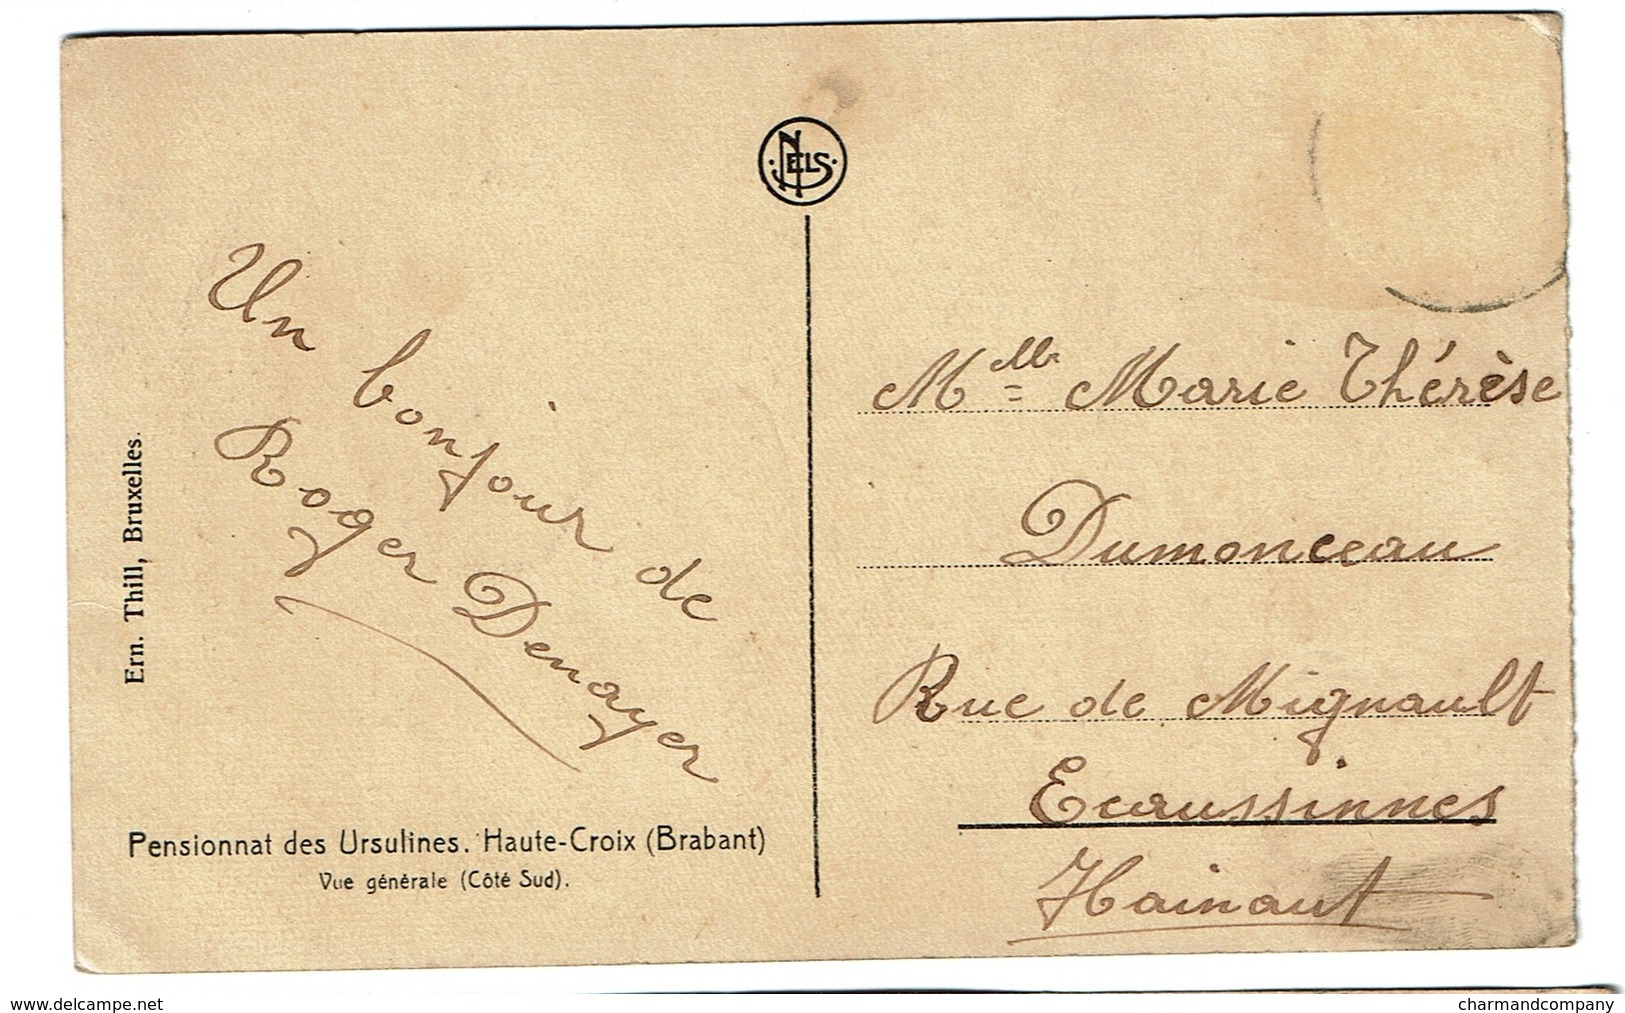 NELS
Un bonjour de
Roger Denayer
Ern. Thill, Bruxelles.
Pensionnat des Ursulines. Haute-Croix (Brabant)
Vue générale (Côté Sud).
Melle Marie Thérèse
Dumonceau
Rue de Mignault
Ecaussinnes
Hainaut
www.delcampe.net
charmandcompany